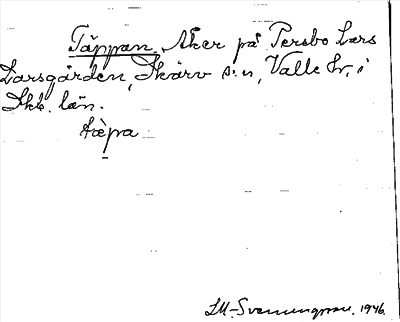 Täppan. Åker på Persbo Lars
Larsgården, Skärv s:n, Valle hr. i
Skb. län.
tæ̀pa
1946.